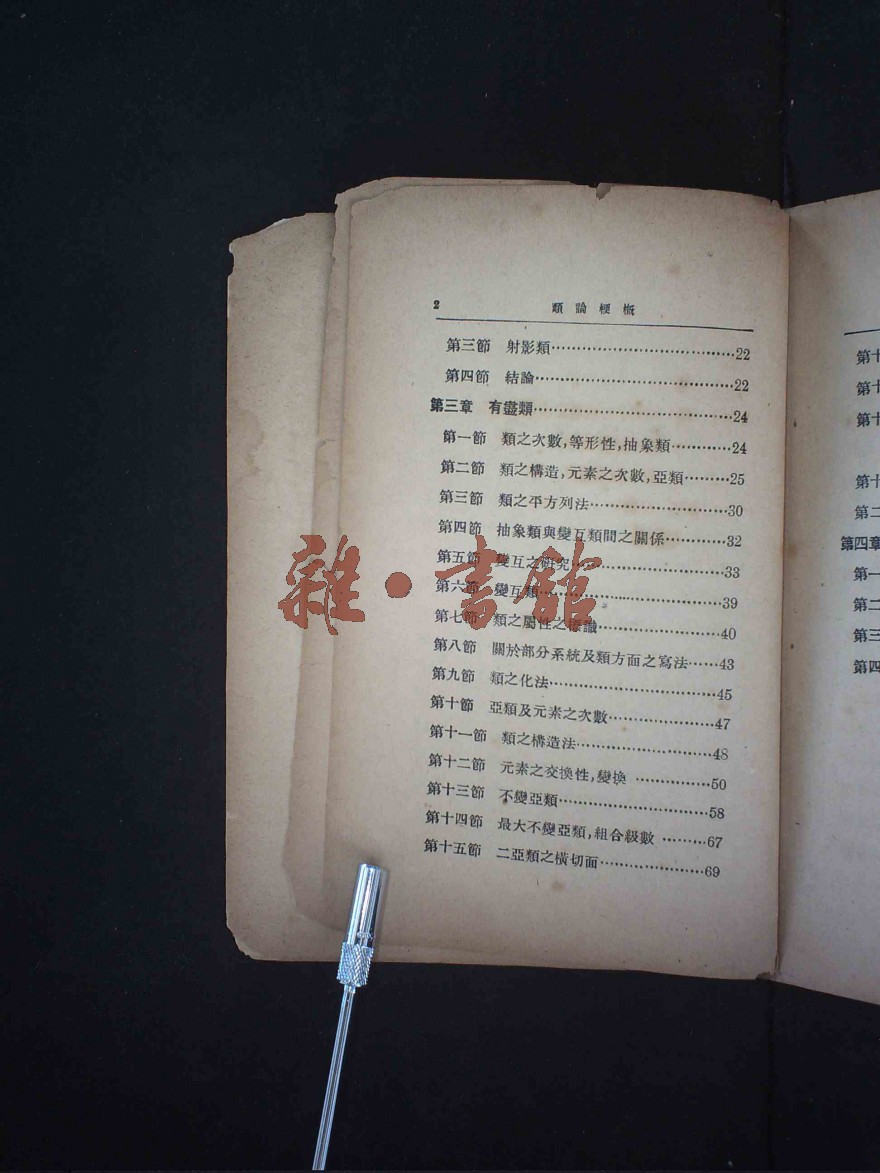 2 類論梗概
第三節 射影類……………………………………22
第四節 結論………………………………………22
第三章 有盡類……………………………………24
第一節 類之次數,等形性,抽象類…………24
第二節 類之構造,元素之次數,亞類………25
第三節 類之平方列法……………………………30
第四節 抽象類與變互類間之關係……………32
第五節 變互之研究………………………………33
第六節 變互類……………………………………39
第七節 類之屬性之標識…………………………40
第八節 關於部分系統及類方面之寫法……43
第九節 類之化法…………………………………45
第十節 亞類及元素之次數………………………47
第十一節 類之構造法……………………………48
第十二節 元素之交換性,變換 ………………50
第十三節 不變亞類………………………………58
第十四節 最大不變亞類,組合級數 ………67
第十五節 二亞類之橫切面………………………69
雜·書館
第十
第十
第十
第十
第二
第四章
第一
第二
第三
第四